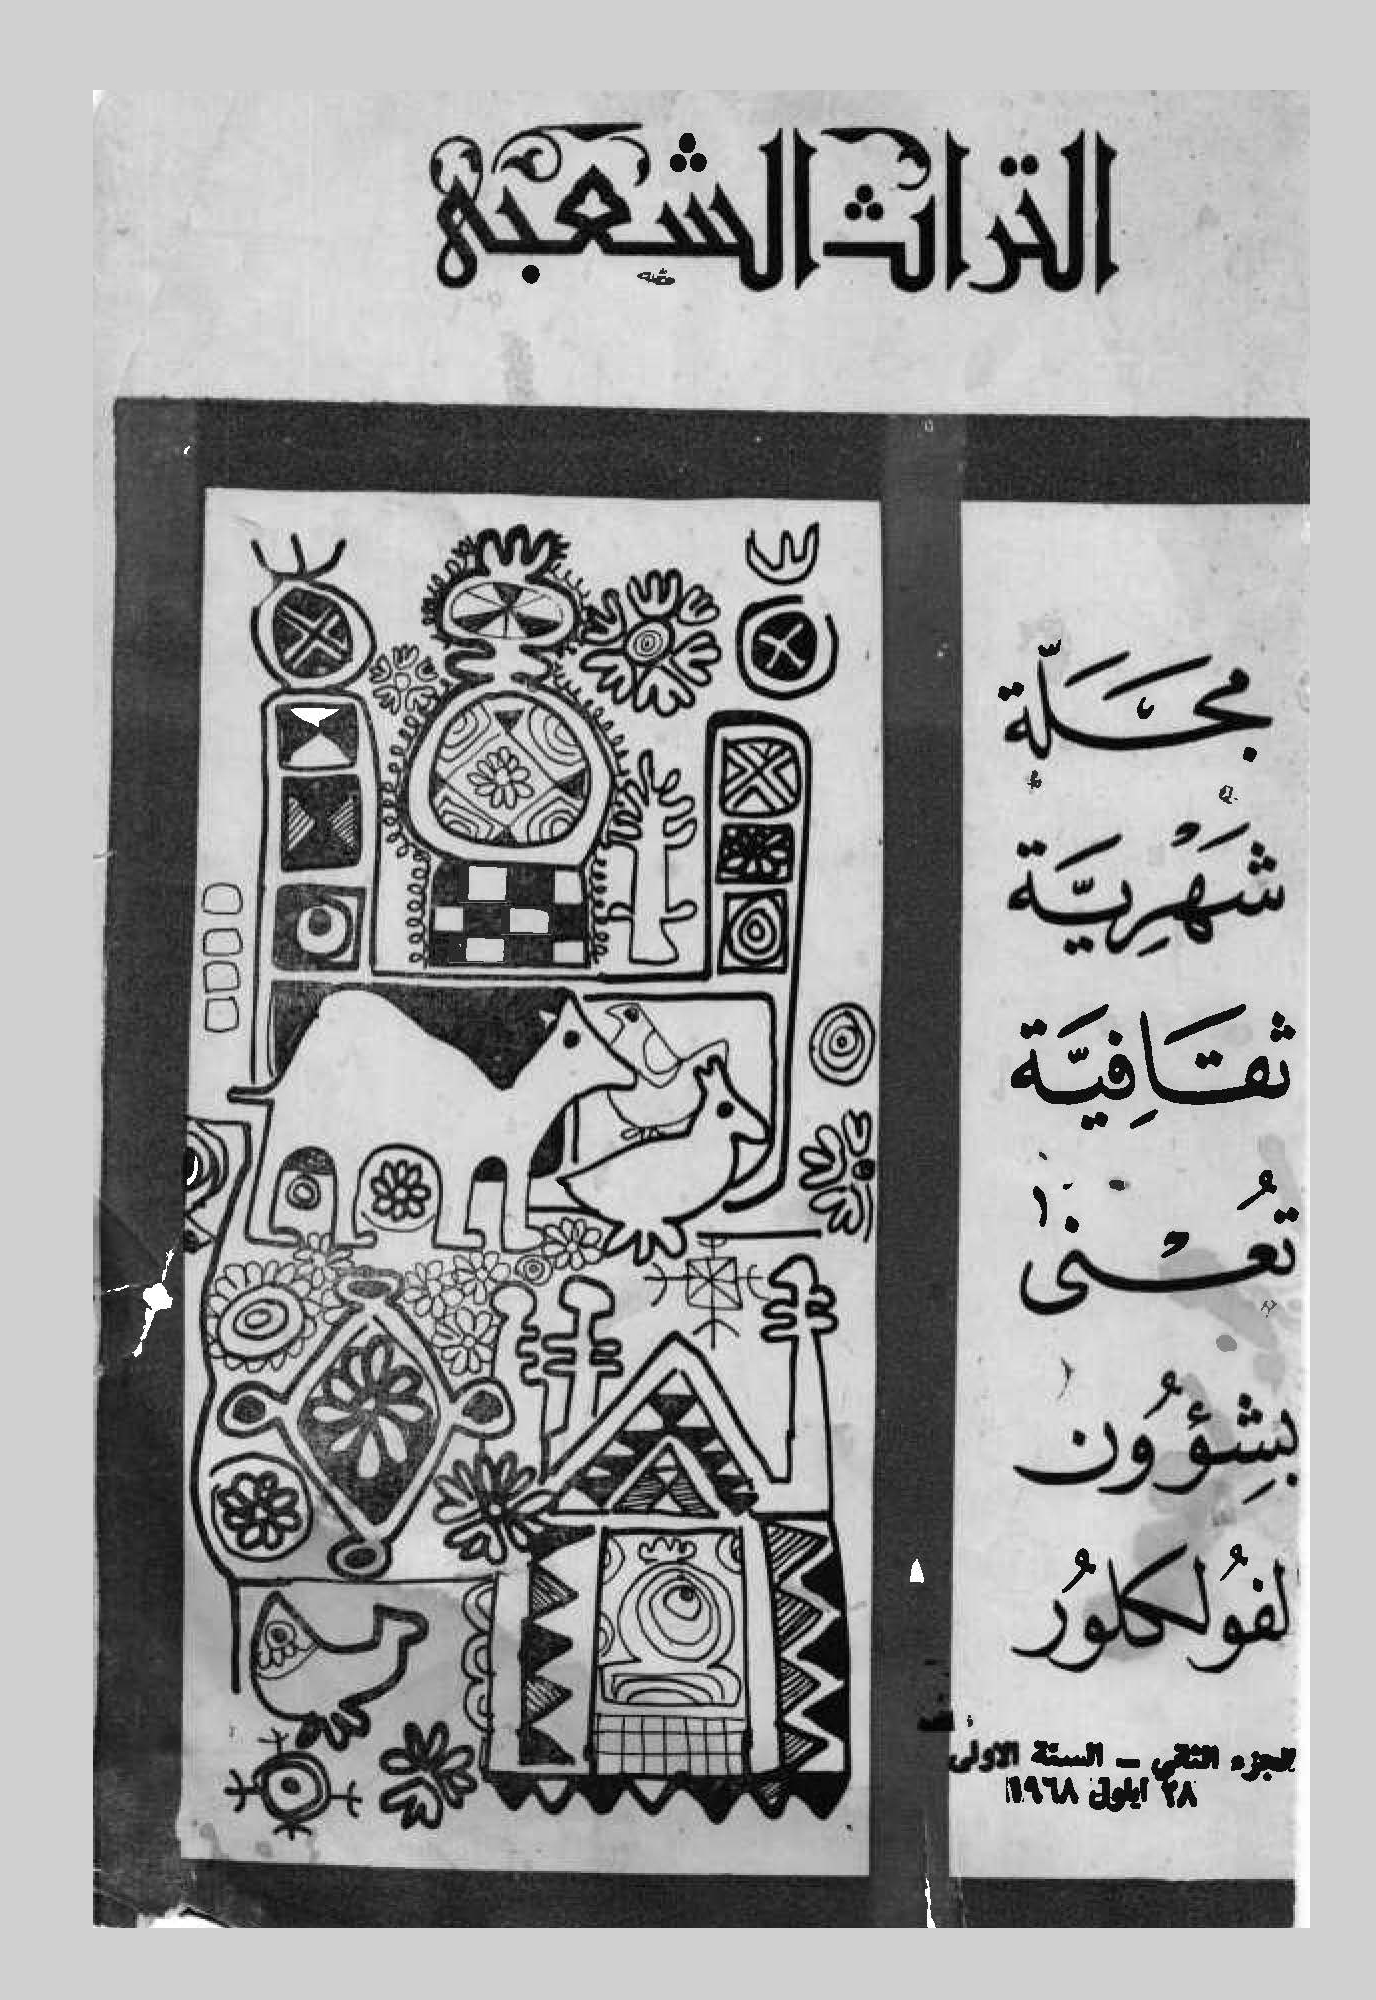 التراث الشعبي
مَجَلَّة
شَهْرِيَّة
ثقَافِيَّة
تُعْنى
بشِؤُون
لفُولكلُور
الجزء الثاني - السنة الاولى
٢٨ ايلول ١٩٦٨